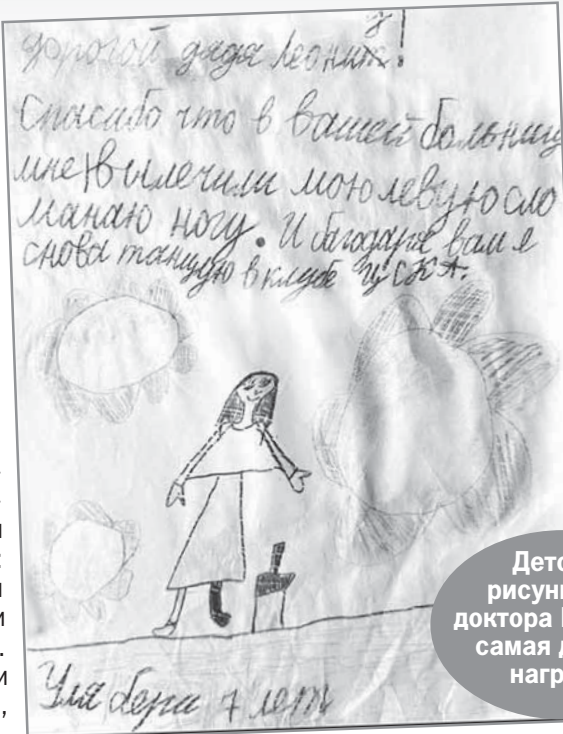 дорогой дядя Леонид!
Спасибо что в вашей больниц
мне вылечили мою левую сло
манаю ногу. И багодаря вам я
снова танцую в клубе ЦСКА.
Уля 7 лет
Детс
рисун
доктора
самая д
нагр